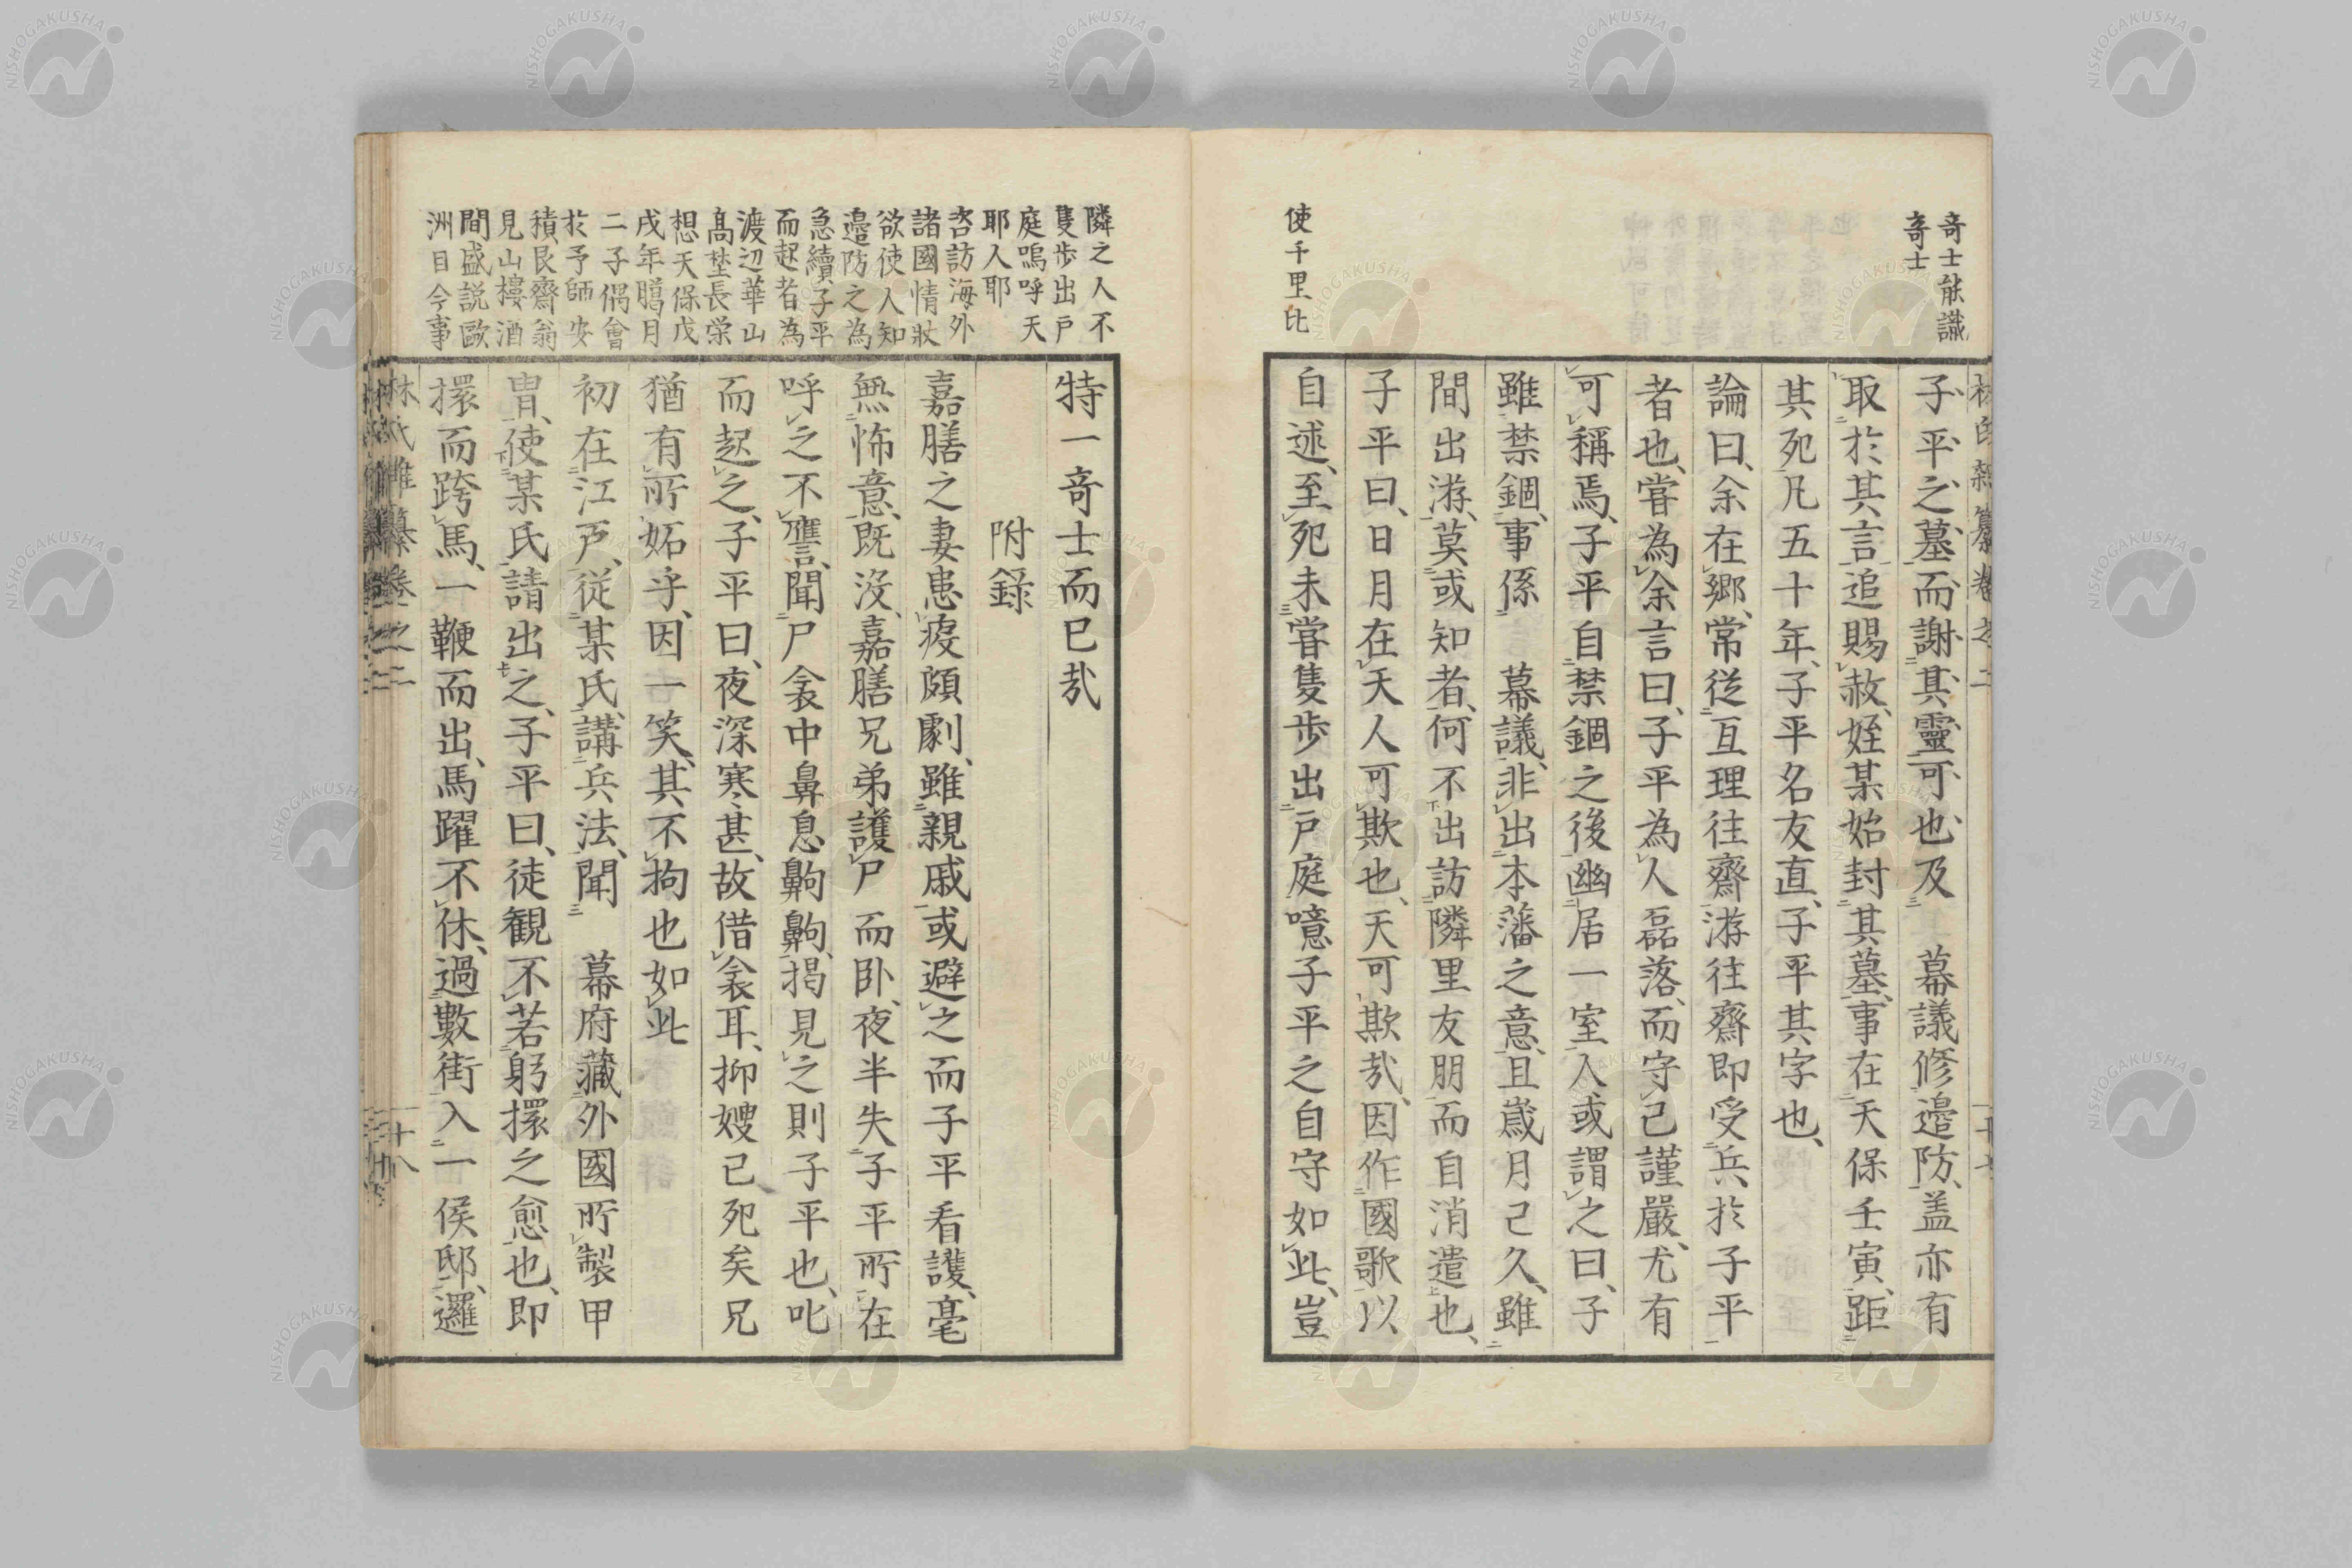 奇士能識
奇士
子平之墓而謝其靈可也及　幕議修邉防盖亦有
取於其言追賜赦姪某始封其墓事在天保壬寅距
其死凡五十年子平名友直子平其字也
論曰余在鄉常從亙理往齋游往齋即受兵於子平
者也嘗為余言曰子平為人磊落而守己謹嚴尤有
可稱焉子平自禁錮之後幽居一室人或謂之曰子
雖禁錮事係　幕議非出本藩之意且嵗月已久雖
間出游莫或知者何不出訪隣里友朋而自消遣也
子平曰日月在天人可欺也天可欺㢤因作國歌以
自述至死未嘗隻步出戶庭噫子平之自守如此豈
使千里比
隣之人不
隻步出戶
庭嗚呼天
耶人耶
咨訪海外
諸國情狀
欲使人知
邉防之為
急續子平
而起者為
渡辺華山
髙埜長栄
想天保戊
戌年臈月
二子偶會
於予師安
積艮齋翁
見山樓酒
間盛説歐
洲目今事
特一奇士而已㢤
附錄
嘉膳之妻患疫頗劇雖親戚或避之而子平看護毫
無怖意既沒嘉膳兄弟護尸而卧夜半失子平所在
呼之不譍聞尸衾中鼻息齁齁揭見之則子平也叱
而起之子平曰夜深寒甚故借衾耳抑嫂已死矣兄
猶有所妬乎因一笑其不拘也如此
初在江戶從某氏講兵法聞　幕府藏外國所製甲
冑使某氏請出之子平曰徒観不若躬擐之愈也即
擐而跨馬一鞭而出馬躍不休過數街入一侯邸邏
林氏雜纂卷之二
十八